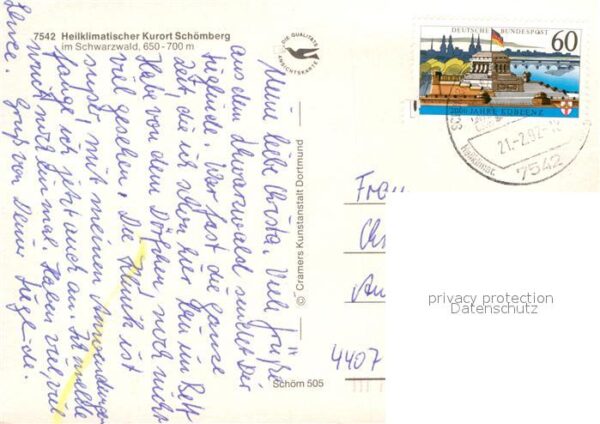 7542 Heilklimatischer Kurort Schömberg
im Schwarzwald, 650-700 m
DIE QUALITÄTS
ANSICHTSKARTE
Meine liebe Christa! Viele Grüße
aus dem Schwarzwald sendet Dir
Ingeide. War fast die ganze
Zeit, die ich schon hier bin im Bett
Habe von dem Dörfchen noch nicht
viel gesehen. Die Klinik ist
super, mit meinen Anwendungen
fange ich jetzt auch an. Ich melde
mich noch mal. Haben viel, viel
Schnee. Gruß von Deine Ingeide.
© Cramers Kunstanstalt Dortmund
Schöm 505
DEUTSCHE BUNDESPOST
60
2000 JAHRE KOBLENZ
21.-2.92
7542
Frau
Chr
An
4407
privacy protection
Datenschutz